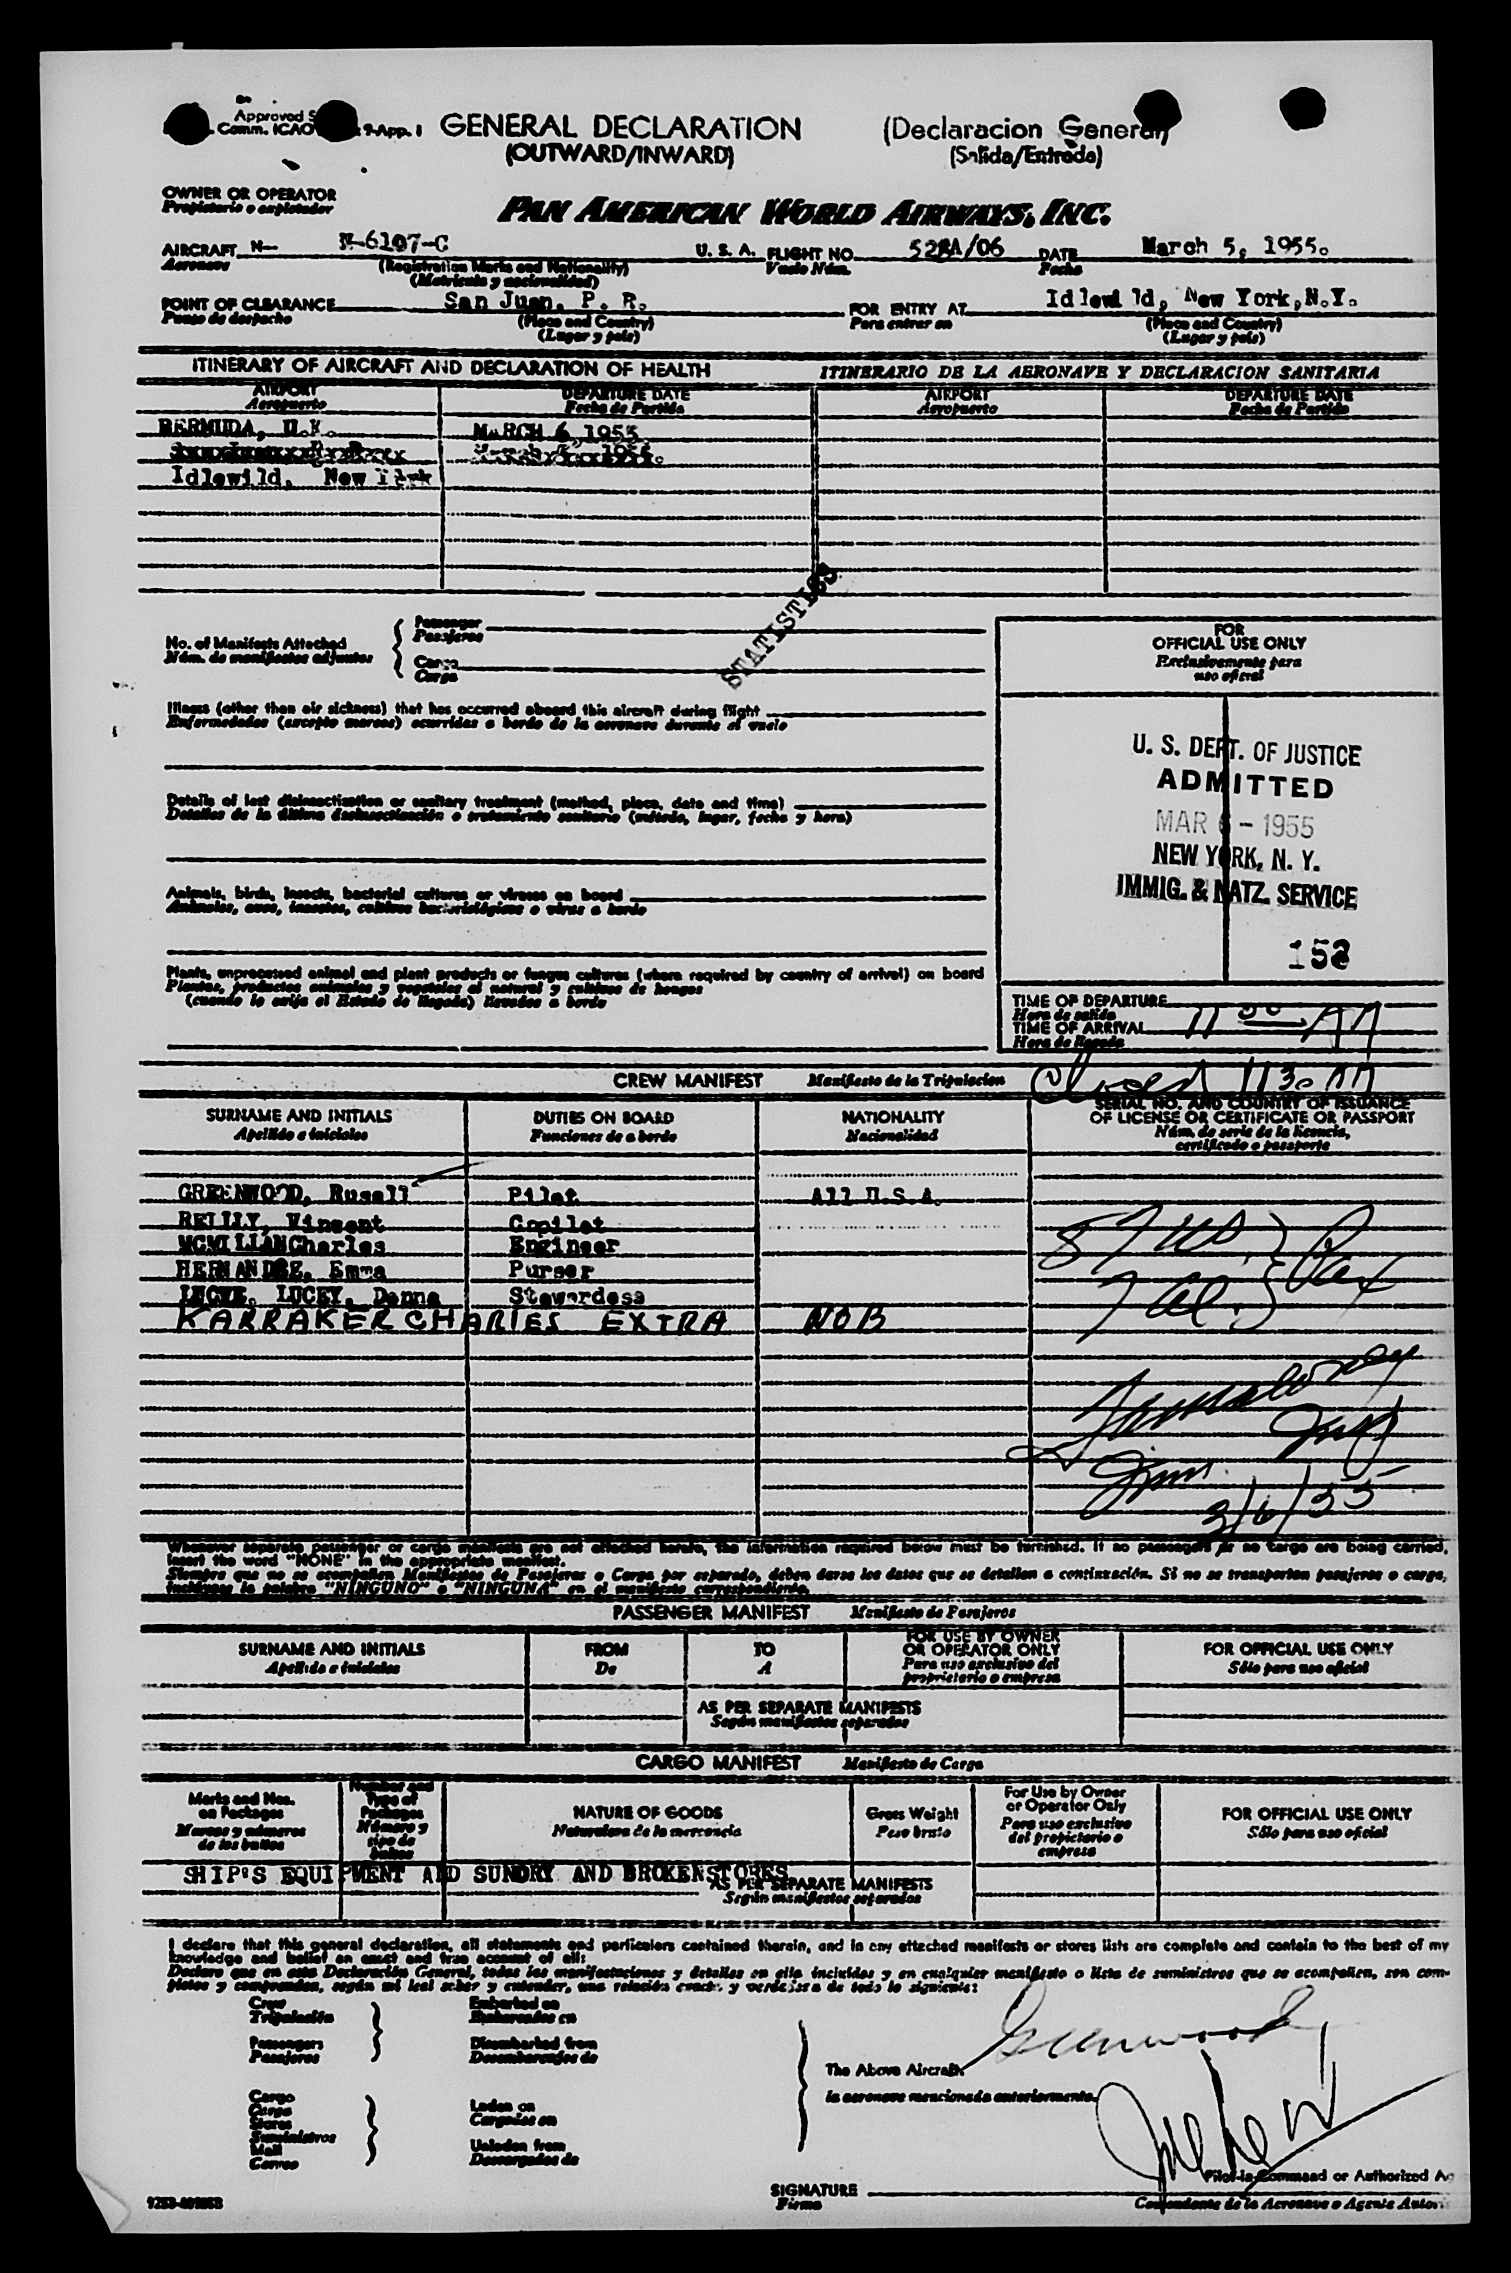 Approved
Comm. ICAO 9-App. 1
GENERAL DECLARATION (Declaracion General)
(OUTWARD/INWARD) (Salida/Entrada)
OWNER OR OPERATOR
Propietario o explotador
PAN AMERICAN WORLD AIRWAYS, INC.
AIRCRAFT N- N-6107-C U. S. A. FLIGHT NO. DATE March 5, 1955.
Aeronave (Registration Marks and Nationality) Vuelo Núm. Fecha
(Matricula y nacionalidad)
POINT OF CLEARANCE San Juan, P. R. FOR ENTRY AT Idlewild, New York,N.Y.
Punto de despacho (Place and Country) Para entrar en (Place and Country)
(Lugar y país) (Lugar y país)
ITINERARY OF AIRCRAFT AND DECLARATION OF HEALTH ITINERARIO DE LA AERONAVE Y DECLARACION SANITARIA
AIRPORT DEPARTURE DATE AIRPORT DEPARTURE DATE
Aeropuerto Fecha de Partida Aeropuerto Fecha de Partida
BERMUDA, U.K. MARCH 6, 1955
Idlewild, New York
STATISTICS
No. of Manifests Attached { Passenger
Núm. de manifiestos adjuntos Pasajeros
Cargo
Carga
FOR
OFFICIAL USE ONLY
Exclusivamente para
uso oficial
Illness (other than air sickness) that has occurred aboard this aircraft during flight
Enfermedades (excepto mareos) ocurridas a bordo de la aeronave durante el vuelo
Details of last disinsectization or sanitary treatment (method, place, date and time)
Detalles de la última desinsectización o tratamiento sanitario (método, lugar, fecha y hora)
Animals, birds, insects, bacterial cultures or viruses on board
Animales, aves, insectos, cultivos bacteriológicos o virus a bordo
Plants, unprocessed animal and plant products or fungus cultures (where required by country of arrival) on board
Plantas, productos animales y vegetales al natural y cultivos de hongos
(cuando lo exija el Estado de llegada) llevados a bordo
U. S. DEPT. OF JUSTICE
ADMITTED
MAR 6 - 1955
NEW YORK, N. Y.
IMMIG. & NATZ. SERVICE
152
TIME OF DEPARTURE
Hora de salida
TIME OF ARRIVAL 11 00 AM
Hora de llegada
CREW MANIFEST Manifiesto de la Tripulacion Closed 1130 AM
SURNAME AND INITIALS DUTIES ON BOARD NATIONALITY SERIAL NO. AND COUNTRY OF ISSUANCE
OF LICENSE OR CERTIFICATE OR PASSPORT
Apellido e iniciales Funciones de a bordo Nacionalidad Núm. de serie de la licencia,
certificado o pasaporte
GREENWOOD, Rusell Pilot All U.S.A.
REILLY, Vincent Copilot
MCMILLANCharles Engineer
HERNANDEZ, Emma Purser
LUCEY, Donna Stewardess
KARRAKER CHARLES EXTRA NOB
57 US. } Pax
7 Al.
Insp
Imm.
3/6/55
Whenever separate passenger or cargo manifests are not attached hereto, the information required below must be furnished. If no passengers or no cargo are being carried,
insert the word "NONE" in the appropriate manifest.
Siempre que no se acompañen Manifiestos de Pasajeros o Carga por separado, deben darse los datos que se detallan a continuación. Si no se transportan pasajeros o carga,
inclúyase la palabra "NINGUNO" o "NINGUNA" en el manifiesto correspondiente.
PASSENGER MANIFEST Manifiesto de Pasajeros
SURNAME AND INITIALS FROM TO FOR USE BY OWNER
OR OPERATOR ONLY FOR OFFICIAL USE ONLY
Apellido e iniciales De A Para uso exclusivo del
propietario o empresa Sólo para uso oficial
AS PER SEPARATE MANIFESTS
Según manifiestos separados
CARGO MANIFEST Manifiesto de Carga
Marks and Nos.
on Packages
Marcas y números
de los bultos
Number and
Type of
Packages
Número y
tipo de
bultos
NATURE OF GOODS
Naturaleza de la mercancía
Gross Weight
Peso bruto
For Use by Owner
or Operator Only
Para uso exclusivo
del propietario o
empresa
FOR OFFICIAL USE ONLY
Sólo para uso oficial
SHIP'S EQUIPMENT AND SUNDRY AND BROKENSTORES
AS PER SEPARATE MANIFESTS
Según manifiestos separados
I declare that this general declaration, all statements and particulars contained therein, and in any attached manifests or stores lists are complete and contain to the best of my
knowledge and belief an exact and true account of all:
Declaro que en esta Declaración General, todas las manifestaciones y detalles en ella incluidos y en cualquier manifiesto o lista de suministros que se acompañen, son com-
pletos y comprenden, según mi leal saber y entender, una relación exacta y verdadera de todo lo siguiente:
Crew
Tripulación
Passengers
Pasajeros
Embarked on
Embarcados en
Disembarked from
Desembarcados de
Cargo
Carga
Stores
Suministros
Mail
Correo
Laden on
Cargados en
Unladen from
Descargados de
The Above Aircraft
la aeronave mencionada anteriormente.
Greenwood
SIGNATURE
Firma
Pilot-in-Command or Authorized
Comandante de la Aeronave o Agente